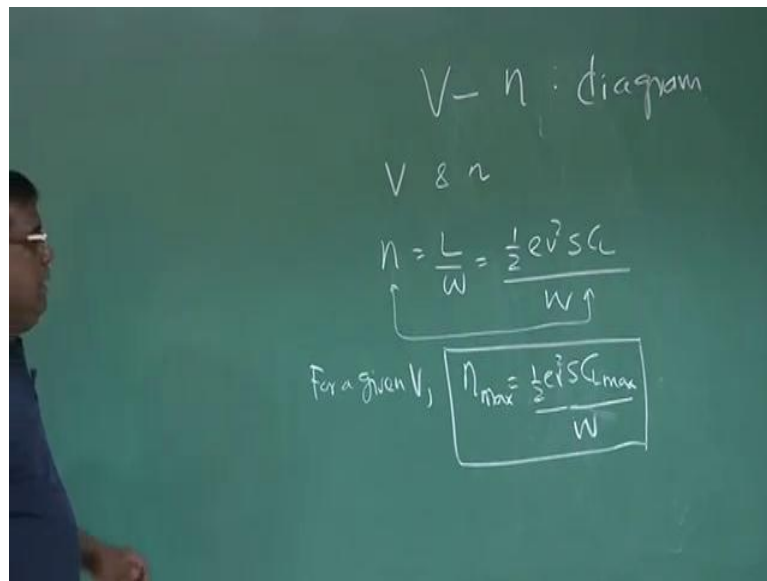 V - n : diagram
V & n
n = L/W = ½ρv²SCL / W
For a given V, nmax = ½ρv²SCLmax / W